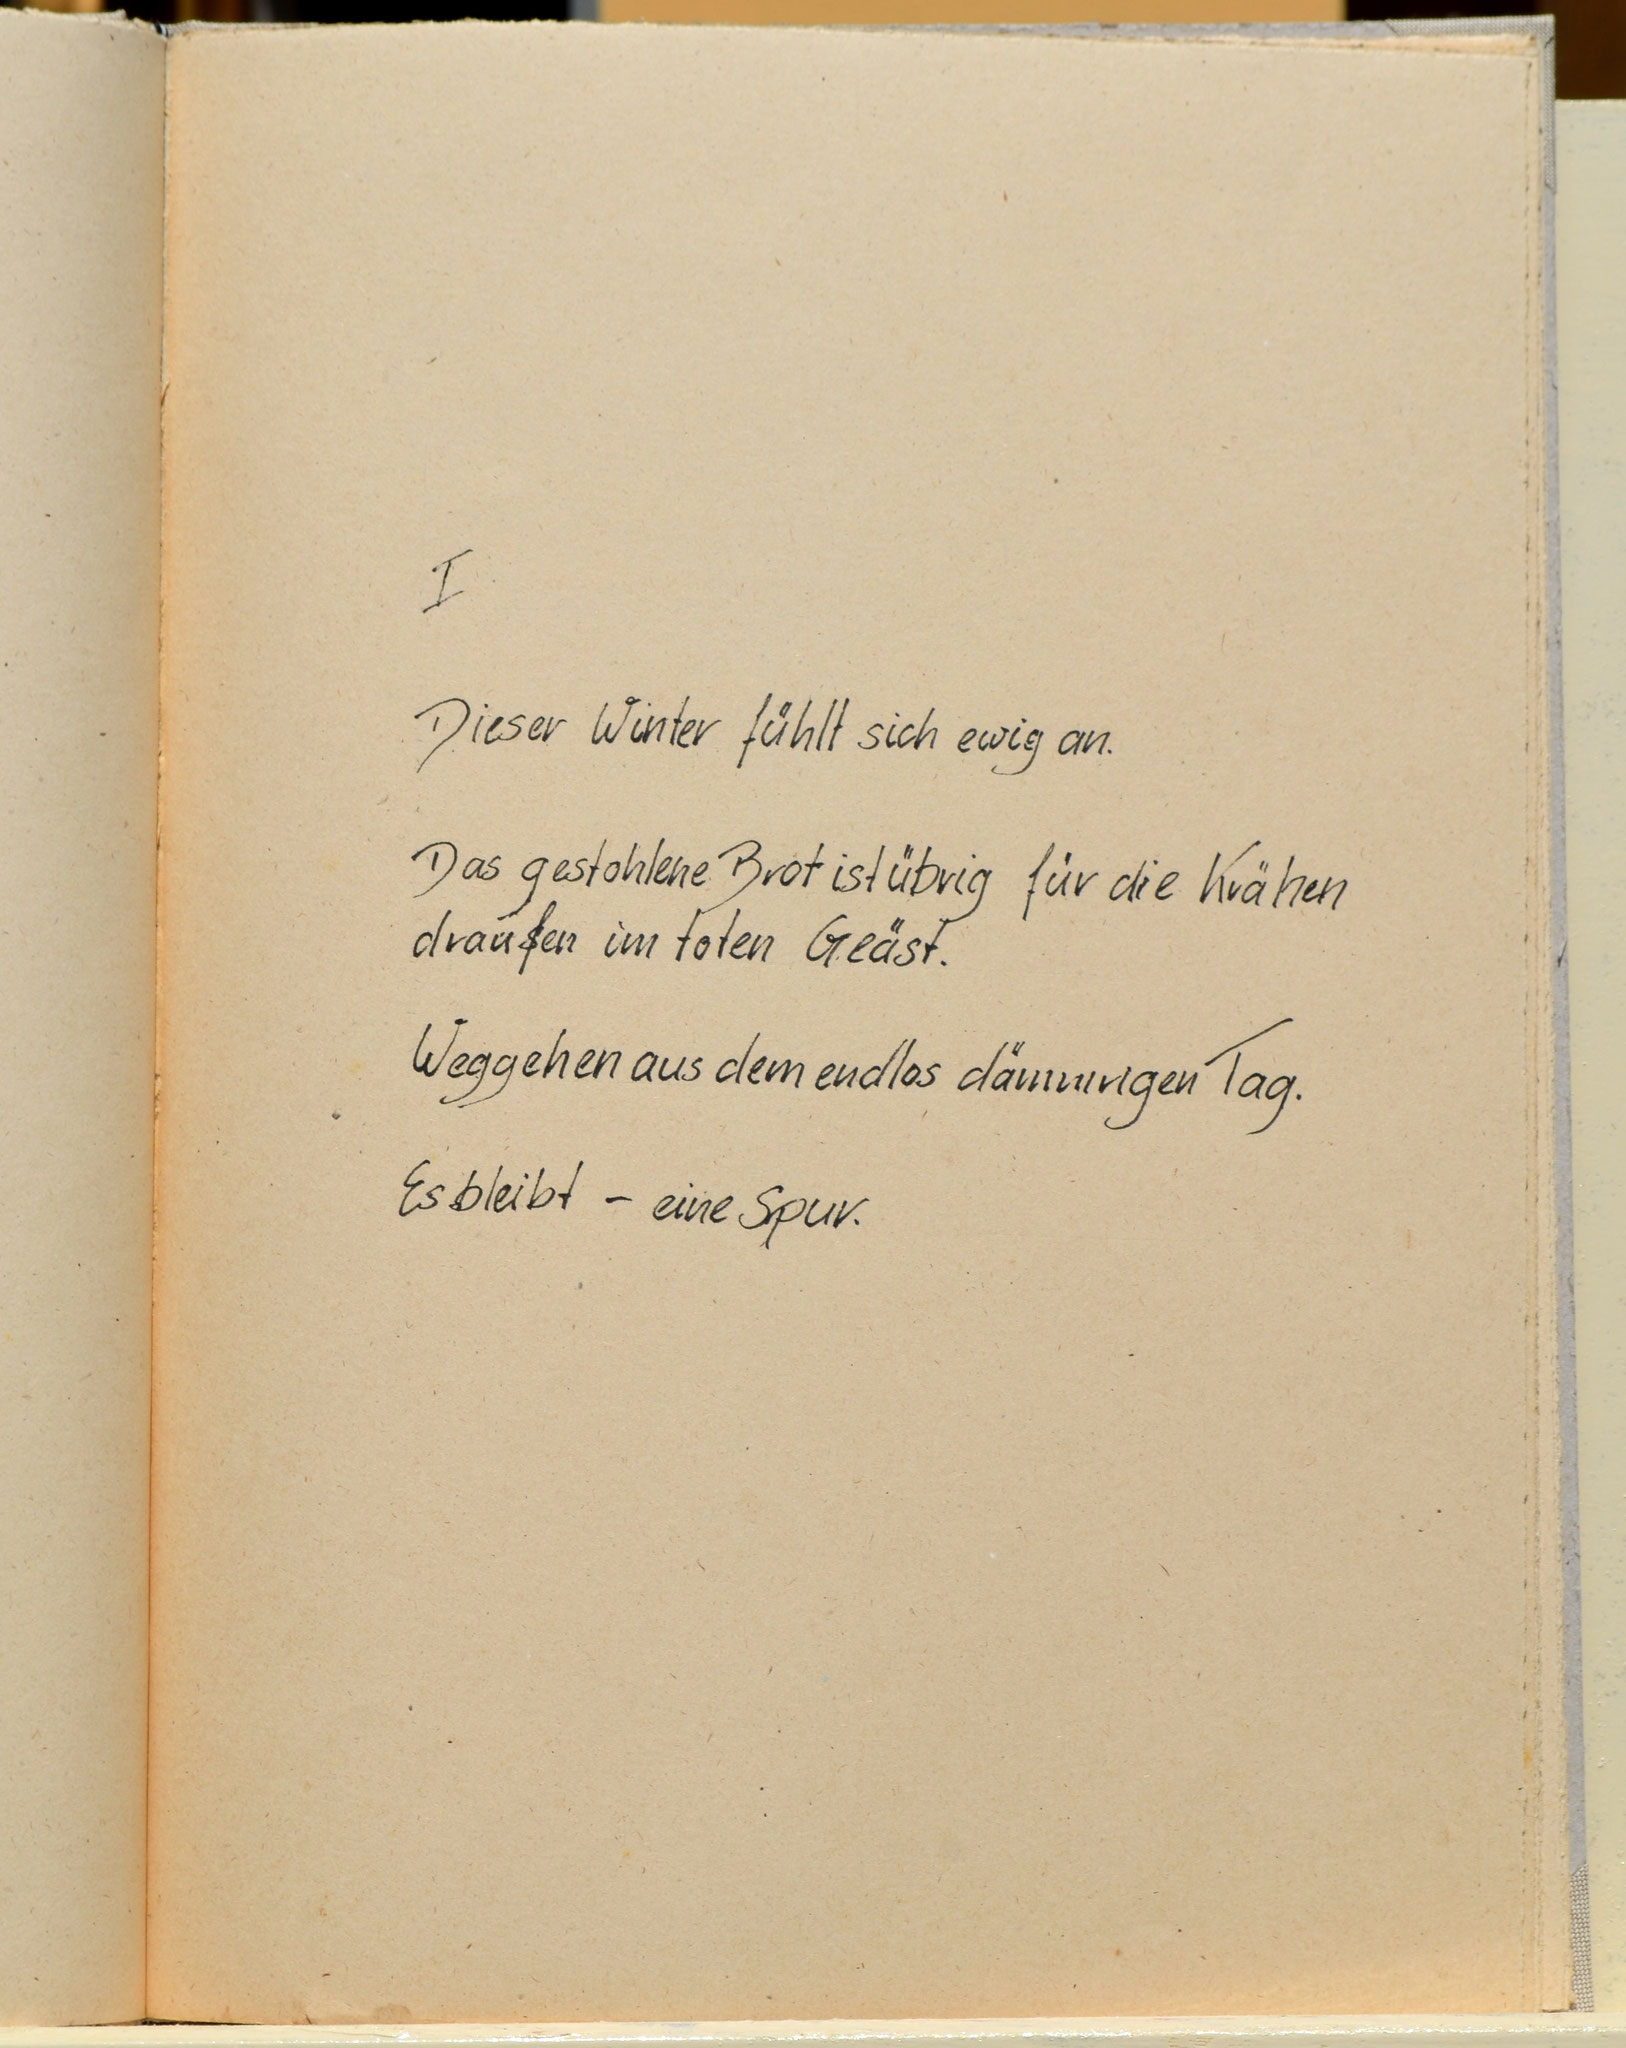 I
Dieser Winter fühlt sich ewig an.
Das gestohlene Brot ist übrig für die Krähen
draußen im toten Geäst.
Weggehen aus dem endlos dämmrigen Tag.
Es bleibt – eine Spur.